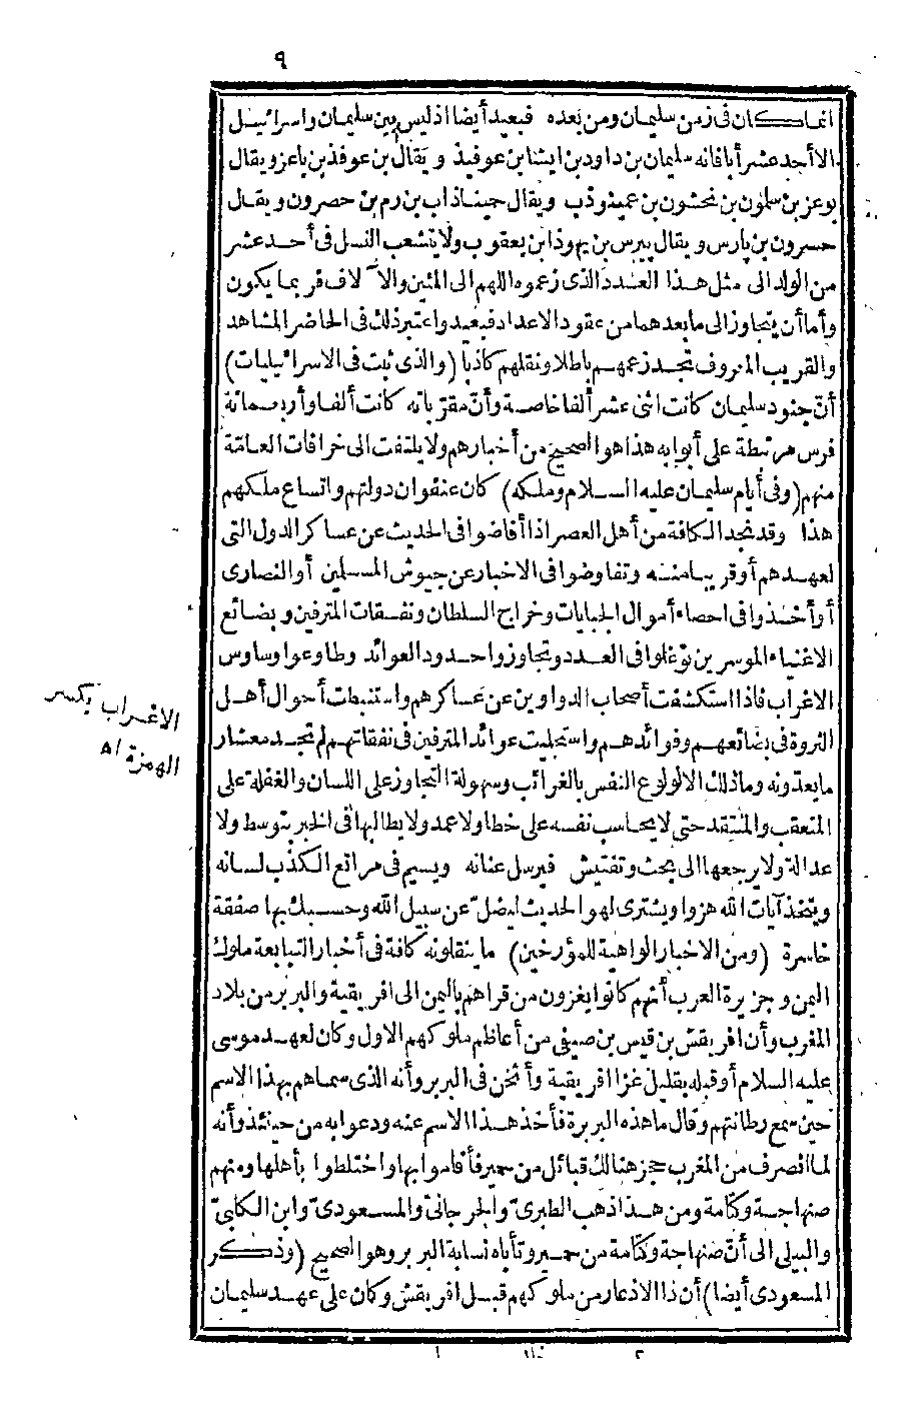 ٩
انما كان فى زمن سليمان ومن بعده فبعيد أيضا اذ ليس بين سليمان واسرائيل
الا أحد عشر أبا فانه سليمان بن داود بن ايشا بن عوفيذ ويقال بن عوفذ بن باعز ويقال
بوعز بن سلمون بن نحشون بن عمينوذب ويقال حميناذاب بن رم بن حصرون ويقال
حسرون بن بارس ويقال بيرس بن يهوذا بن يعقوب ولا يتشعب النسل فى أحد عشر
من الولد الى مثل هذا العدد الذى زعموه اللهم الى المئين والآلاف فربما يكون
وأما أن يتجاوز الى ما بعدهما من عقود الاعداد فبعيد واعتبر ذلك فى الحاضر المشاهد
والقريب المعروف تجد زعمهم باطلا ونقلهم كاذبا (والذى ثبت فى الاسرائيليات)
أن جنود سليمان كانت اثنى عشر ألفا خاصة وأن مقرباته كانت ألفا وأربعمائة
فرس مرتبطة على أبوابه هذا هو الصحيح من أخبارهم ولا يلتفت الى خرافات العامّة
منهم (وفى أيام سليمان عليه السلام وملكه) كان عنفوان دولتهم واتساع ملكهم
هذا وقد نجد الكافة من أهل العصر اذا أفاضوا فى الحديث عن عساكر الدول التى
لعهدهم أو قريبا منه وتفاوضوا فى الاخبار عن جيوش المسلمين أو النصارى
أو أخذوا فى احصاء أموال الجبايات وخراج السلطان ونفقات المترفين وبضائع
الاغنياء الموسرين توغلوا فى العدد وتجاوزوا حدود العوائد وطاوعوا وساوس
الاغراب فاذا استكشفت أصحاب الدواوين عن عساكرهم واستنبطت أحوال أهل
الثروة فى بضائعهم وفوائدهم واستجليت عوائد المترفين فى نفقاتهم لم تجد معشار
ما يعدّونه وما ذلك الا لولوع النفس بالغرائب وسهولة التجاوز على اللسان والغفلة على
المتعقب والمنتقد حتى لا يحاسب نفسه على خطا ولا عمد ولا يطالبها فى الخبر بتوسط ولا
عدالة ولا يرجعها الى بحث وتفتيش فيرسل عنانه ويسيم فى مراتع الكذب لسانه
ويتخذ آيات الله هزوا ويشترى لهو الحديث ليضل عن سبيل الله وحسبك بها صفقة
خاسرة (ومن الاخبار الواهية للمؤرخين) ما ينقلونه كافة فى أخبار التبابعة ملوك
اليمن وجزيرة العرب أنهم كانوا يغزون من قراهم باليمن الى افريقية والبربر من بلاد
المغرب وأن افريقش بن قيس بن صيفى من أعاظم ملوكهم الاول وكان لعهد موسى
عليه السلام أو قبله بقليل غزا افريقية وأثخن فى البربر وأنه الذى سماهم بهذا الاسم
حين سمع رطانتهم وقال ما هذه البربرة فأخذ هذا الاسم عنه ودعوا به من حينئذ وأنه
لما انصرف من المغرب حجز هنالك قبائل من حمير فأقاموا بها واختلطوا بأهلها ومنهم
صنهاجة وكتامة ومن هذا ذهب الطبرىّ والجرجانىّ والمسعودىّ وابن الكلبىّ
والبيلى الى أنّ صنهاجة وكتامة من حمير وتأباه نسابة البربر وهو الصحيح (وذكر
المسعودى أيضا) أن ذا الاذعار من ملوكهم قبل افريقش وكان على عهد سليمان
الاغراب بكسر
الهمزة اه